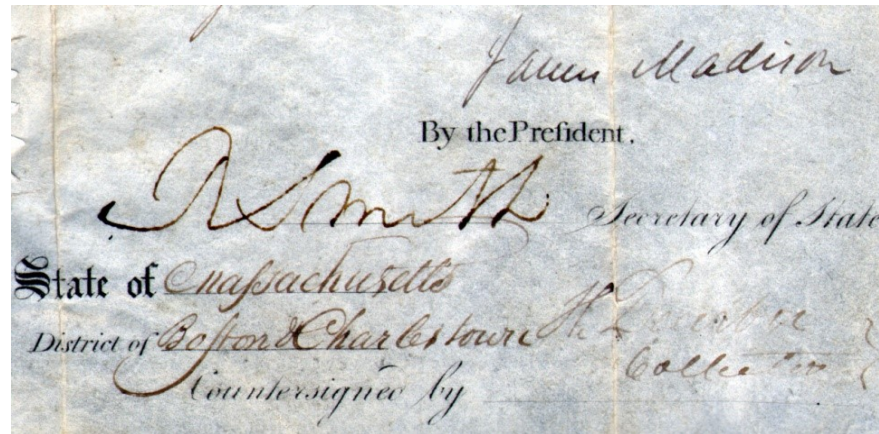 James Madison
By the Preſident.
R Smith Secretary of State
State of Maſsachusetts
District of Boſton & Charlestown H
Collector
Countersigned by